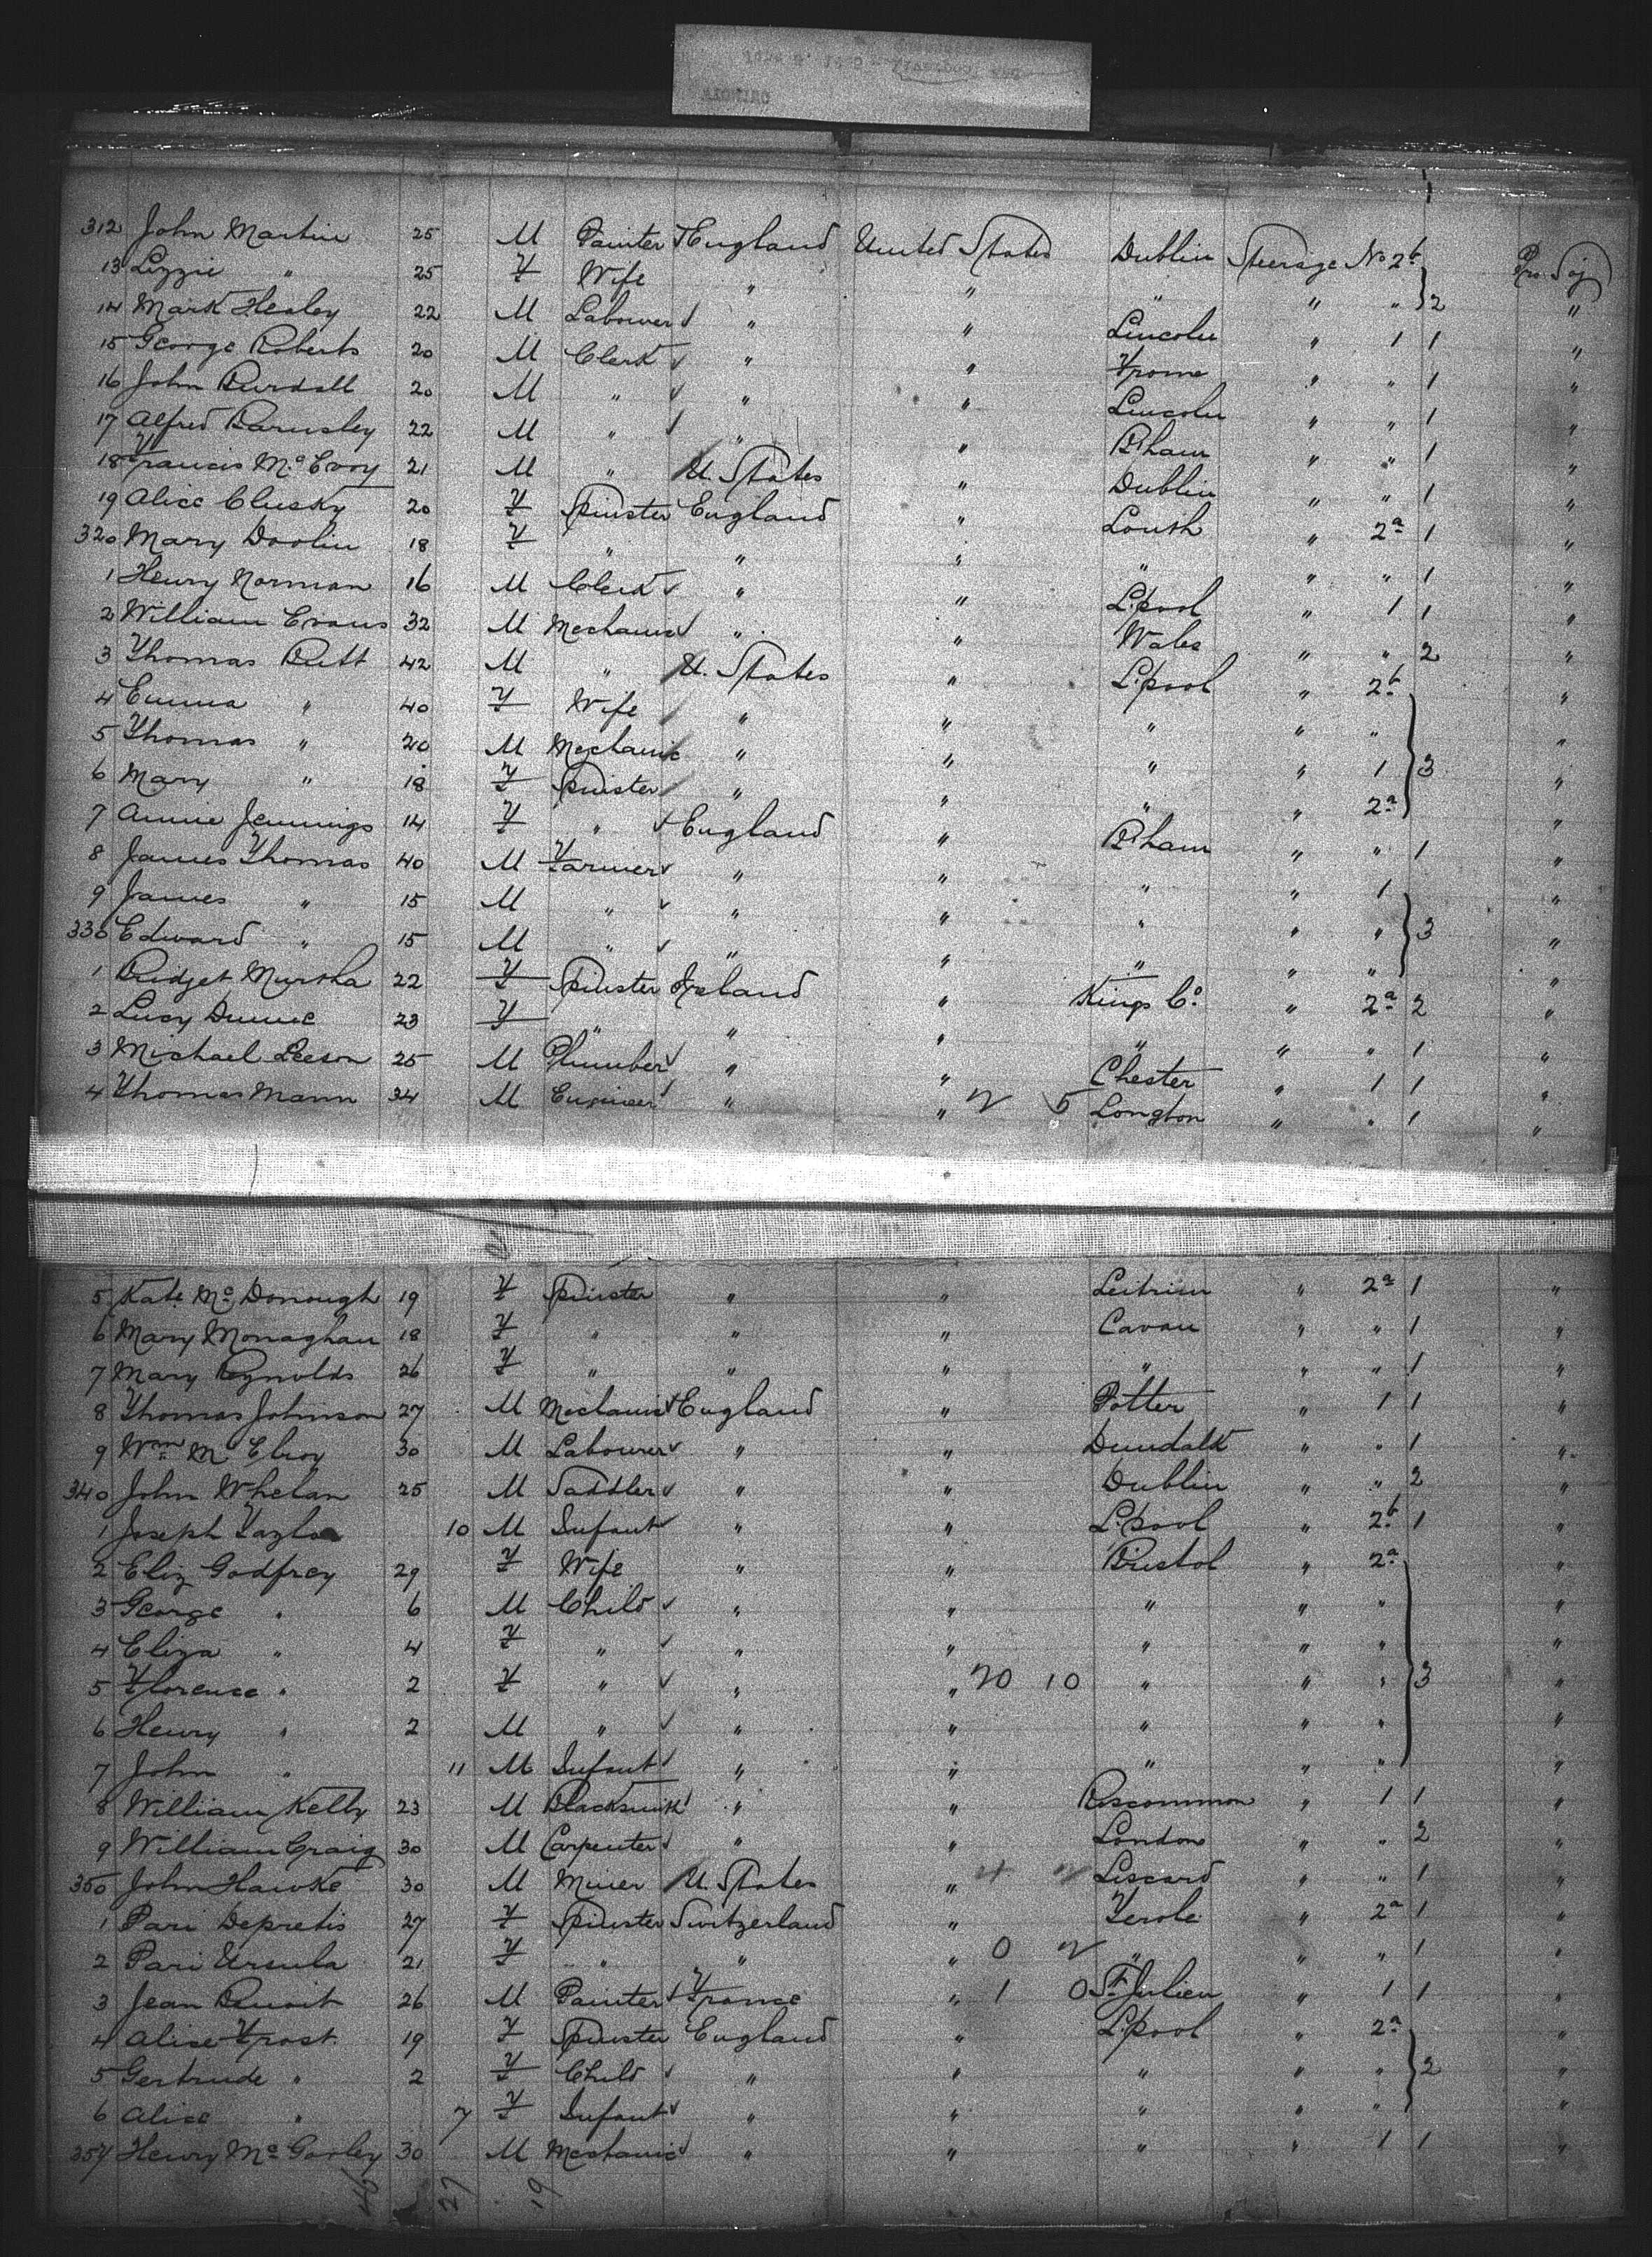 312 John Martin 25 M Painter England United States Dublin Steerage No 2b
13 Lizzie " 25 F Wife " " " " " 2 "
14 Mark Healey 22 M Labourer " " Lincoln " 1 1 "
15 George Roberts 20 M Clerk " " Frome " " 1 "
16 John Burdall 20 M " " " Lincoln " " 1 "
17 Alfred Barnsley 22 M " " " B'ham " " 1 "
18 Francis Mc Evoy 21 M " U. States " Dublin " " 1 "
19 Alice Clusky 20 F Spinster England " Louth " 2a 1 "
320 Mary Doolin 18 F " " " " " " 1 "
1 Henry Norman 16 M Clerk " " L.pool " 1 1 "
2 William Evans 32 M Mechanic " " Wales " " 2 "
3 Thomas Butt 42 M " U. States " L.pool " 2b "
4 Emma " 40 F Wife " " " " " "
5 Thomas " 20 M Mechanic " " " " 1 3 "
6 Mary " 18 F Spinster " " " " 2a "
7 Annie Jennings 14 F " England " B'ham " " 1 "
8 James Thomas 40 M Farmer " " " " 1 "
9 James " 15 M " " " " " " 3 "
330 Edward " 15 M " " " " " " "
1 Bridget Murtha 22 F Spinster Ireland " Kings Co. " 2a 2 "
2 Lucy Dunne 23 F " " " " " " 1 "
3 Michael Leeson 25 M Plumber " " Chester " 1 1 "
4 Thomas Mann 34 M Engineer " " 5 Longton " " 1 "
5 Kate Mc Donough 19 F Spinster " " Leitrim " 2a 1 "
6 Mary Monaghan 18 F " " " Cavan " " 1 "
7 Mary Reynolds 26 F " " " " " " 1 "
8 Thomas Johnson 27 M Mechanic England " Potter " 1 1 "
9 Wm Mc Elroy 30 M Labourer " " Dundalk " " 1 "
340 John Whelan 25 M Saddler " " Dublin " " 2 "
1 Joseph Taylor 10 M Infant " " L.pool " 2b 1 "
2 Eliz Godfrey 29 F Wife " " Bristol " 2a "
3 George " 6 M Child " " " " " "
4 Eliza " 4 F " " " " " " "
5 Florence " 2 F " " " 10 " " " 3 "
6 Henry " 2 M " " " " " " "
7 John " 11 M Infant " " " " " "
8 William Kelly 23 M Blacksmith " " Roscommon " 1 1 "
9 William Craig 30 M Carpenter " " London " " 2 "
350 John Hawke 30 M Miner U. States " Liscard " " 1 "
1 Pari Depretis 27 F Spinster Switzerland " Terole " 2a 1 "
2 Pari Ursula 21 F " " " 0 " " " 1 "
3 Jean Benoit 26 M Painter France " 1 0 St. Julien " 1 1 "
4 Alice Frost 19 F Spinster England " L.pool " 2a "
5 Gertrude " 2 F Child " " " " " 2 "
6 Alice " 7 F Infant " " " " " "
357 Henry Mc Gorley 30 M Mechanic " " " " 1 1 "
27 19